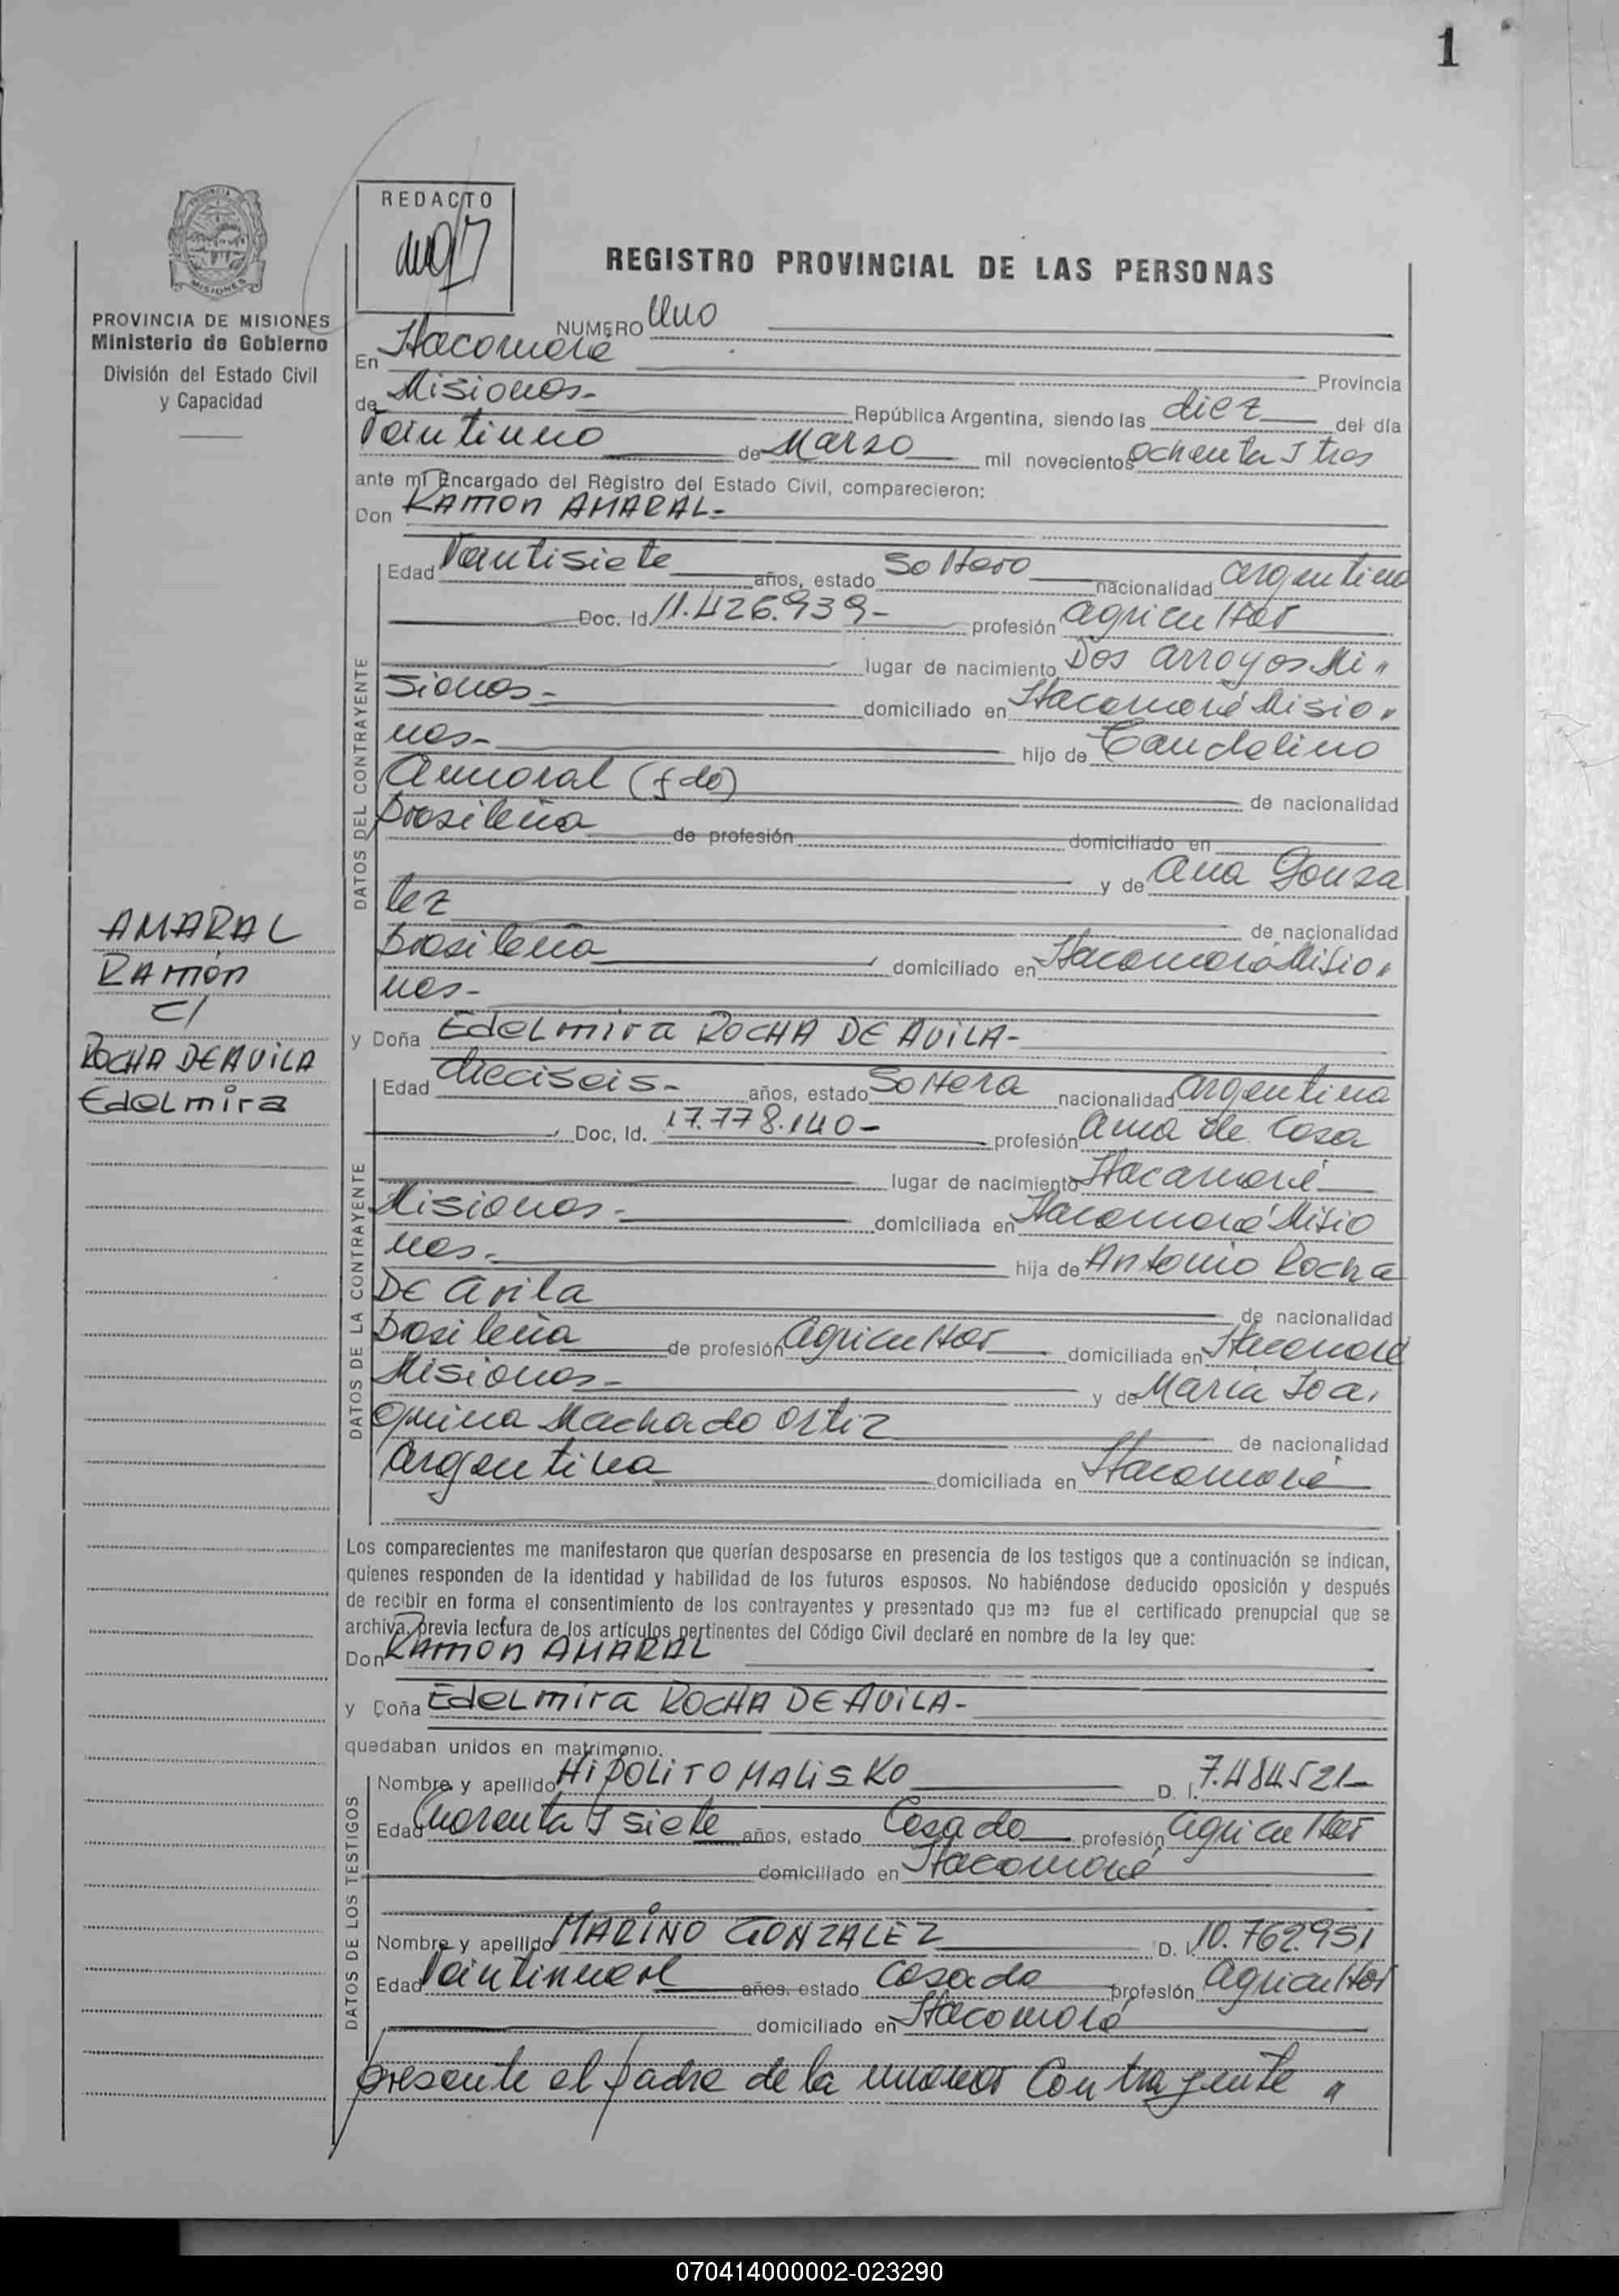 1
REDACTO
REGISTRO PROVINCIAL DE LAS PERSONAS
MISIONES
PROVINCIA DE MISIONES
Ministerio de Gobierno
División del Estado Civil
y Capacidad
NUMERO Uno
En Itacaruaré Provincia
de Misiones- República Argentina, siendo las diez del día
Veintiuno de Marzo mil novecientos ochenta y tres
ante mí Encargado del Registro del Estado Civil, comparecieron:
Don RAMON AMARAL-
DATOS DEL CONTRAYENTE
Edad Veintisiete años, estado Soltero nacionalidad argentino
Doc. Id. 11.426.939- profesión agricultor
lugar de nacimiento Dos Arroyos Mi
siones- domiciliado en Itacaruaré Misio
nes- hijo de
Amaral (fdo) de nacionalidad
brasileña de profesión domiciliado en
y de Ana Gonza
lez de nacionalidad
brasileña domiciliado en Itacaruaré Misio
nes-
AMARAL
RAMÓN
C/
ROCHA DE AVILA
Edelmira
y Doña Edelmira ROCHA DE AVILA-
DATOS DE LA CONTRAYENTE
Edad dieciseis- años, estado Soltera nacionalidad argentina
Doc, Id. 17.778.140- profesión ama de casa
lugar de nacimiento Itacaruaré
Misiones- domiciliada en Itacaruaré Misio
nes- hija de Antonio Rocha
De Avila de nacionalidad
brasileña de profesión agricultor domiciliada en Itacaruaré
Misiones- y de María Joa
quina Machado Ortiz de nacionalidad
argentina domiciliada en Itacaruaré
Los comparecientes me manifestaron que querían desposarse en presencia de los testigos que a continuación se indican,
quienes responden de la identidad y habilidad de los futuros esposos. No habiéndose deducido oposición y después
de recibir en forma el consentimiento de los contrayentes y presentado que me fue el certificado prenupcial que se
archiva, previa lectura de los artículos pertinentes del Código Civil declaré en nombre de la ley que:
Don RAMON AMARAL
y Doña Edelmira ROCHA DE AVILA-
quedaban unidos en matrimonio.
DATOS DE LOS TESTIGOS
Nombre y apellido HIPOLITO MALISKO D. I. 7.484.521-
Edad Cuarenta y siete años, estado Casado profesión agricultor
domiciliado en Itacaruaré
Nombre y apellido MARINO GONZALEZ D. I. 10.762.951
Edad Veintinueve años. estado Casado profesión agricultor
domiciliado en Itacaruaré
presente el padre de la menor Contrayente
070414000002-023290